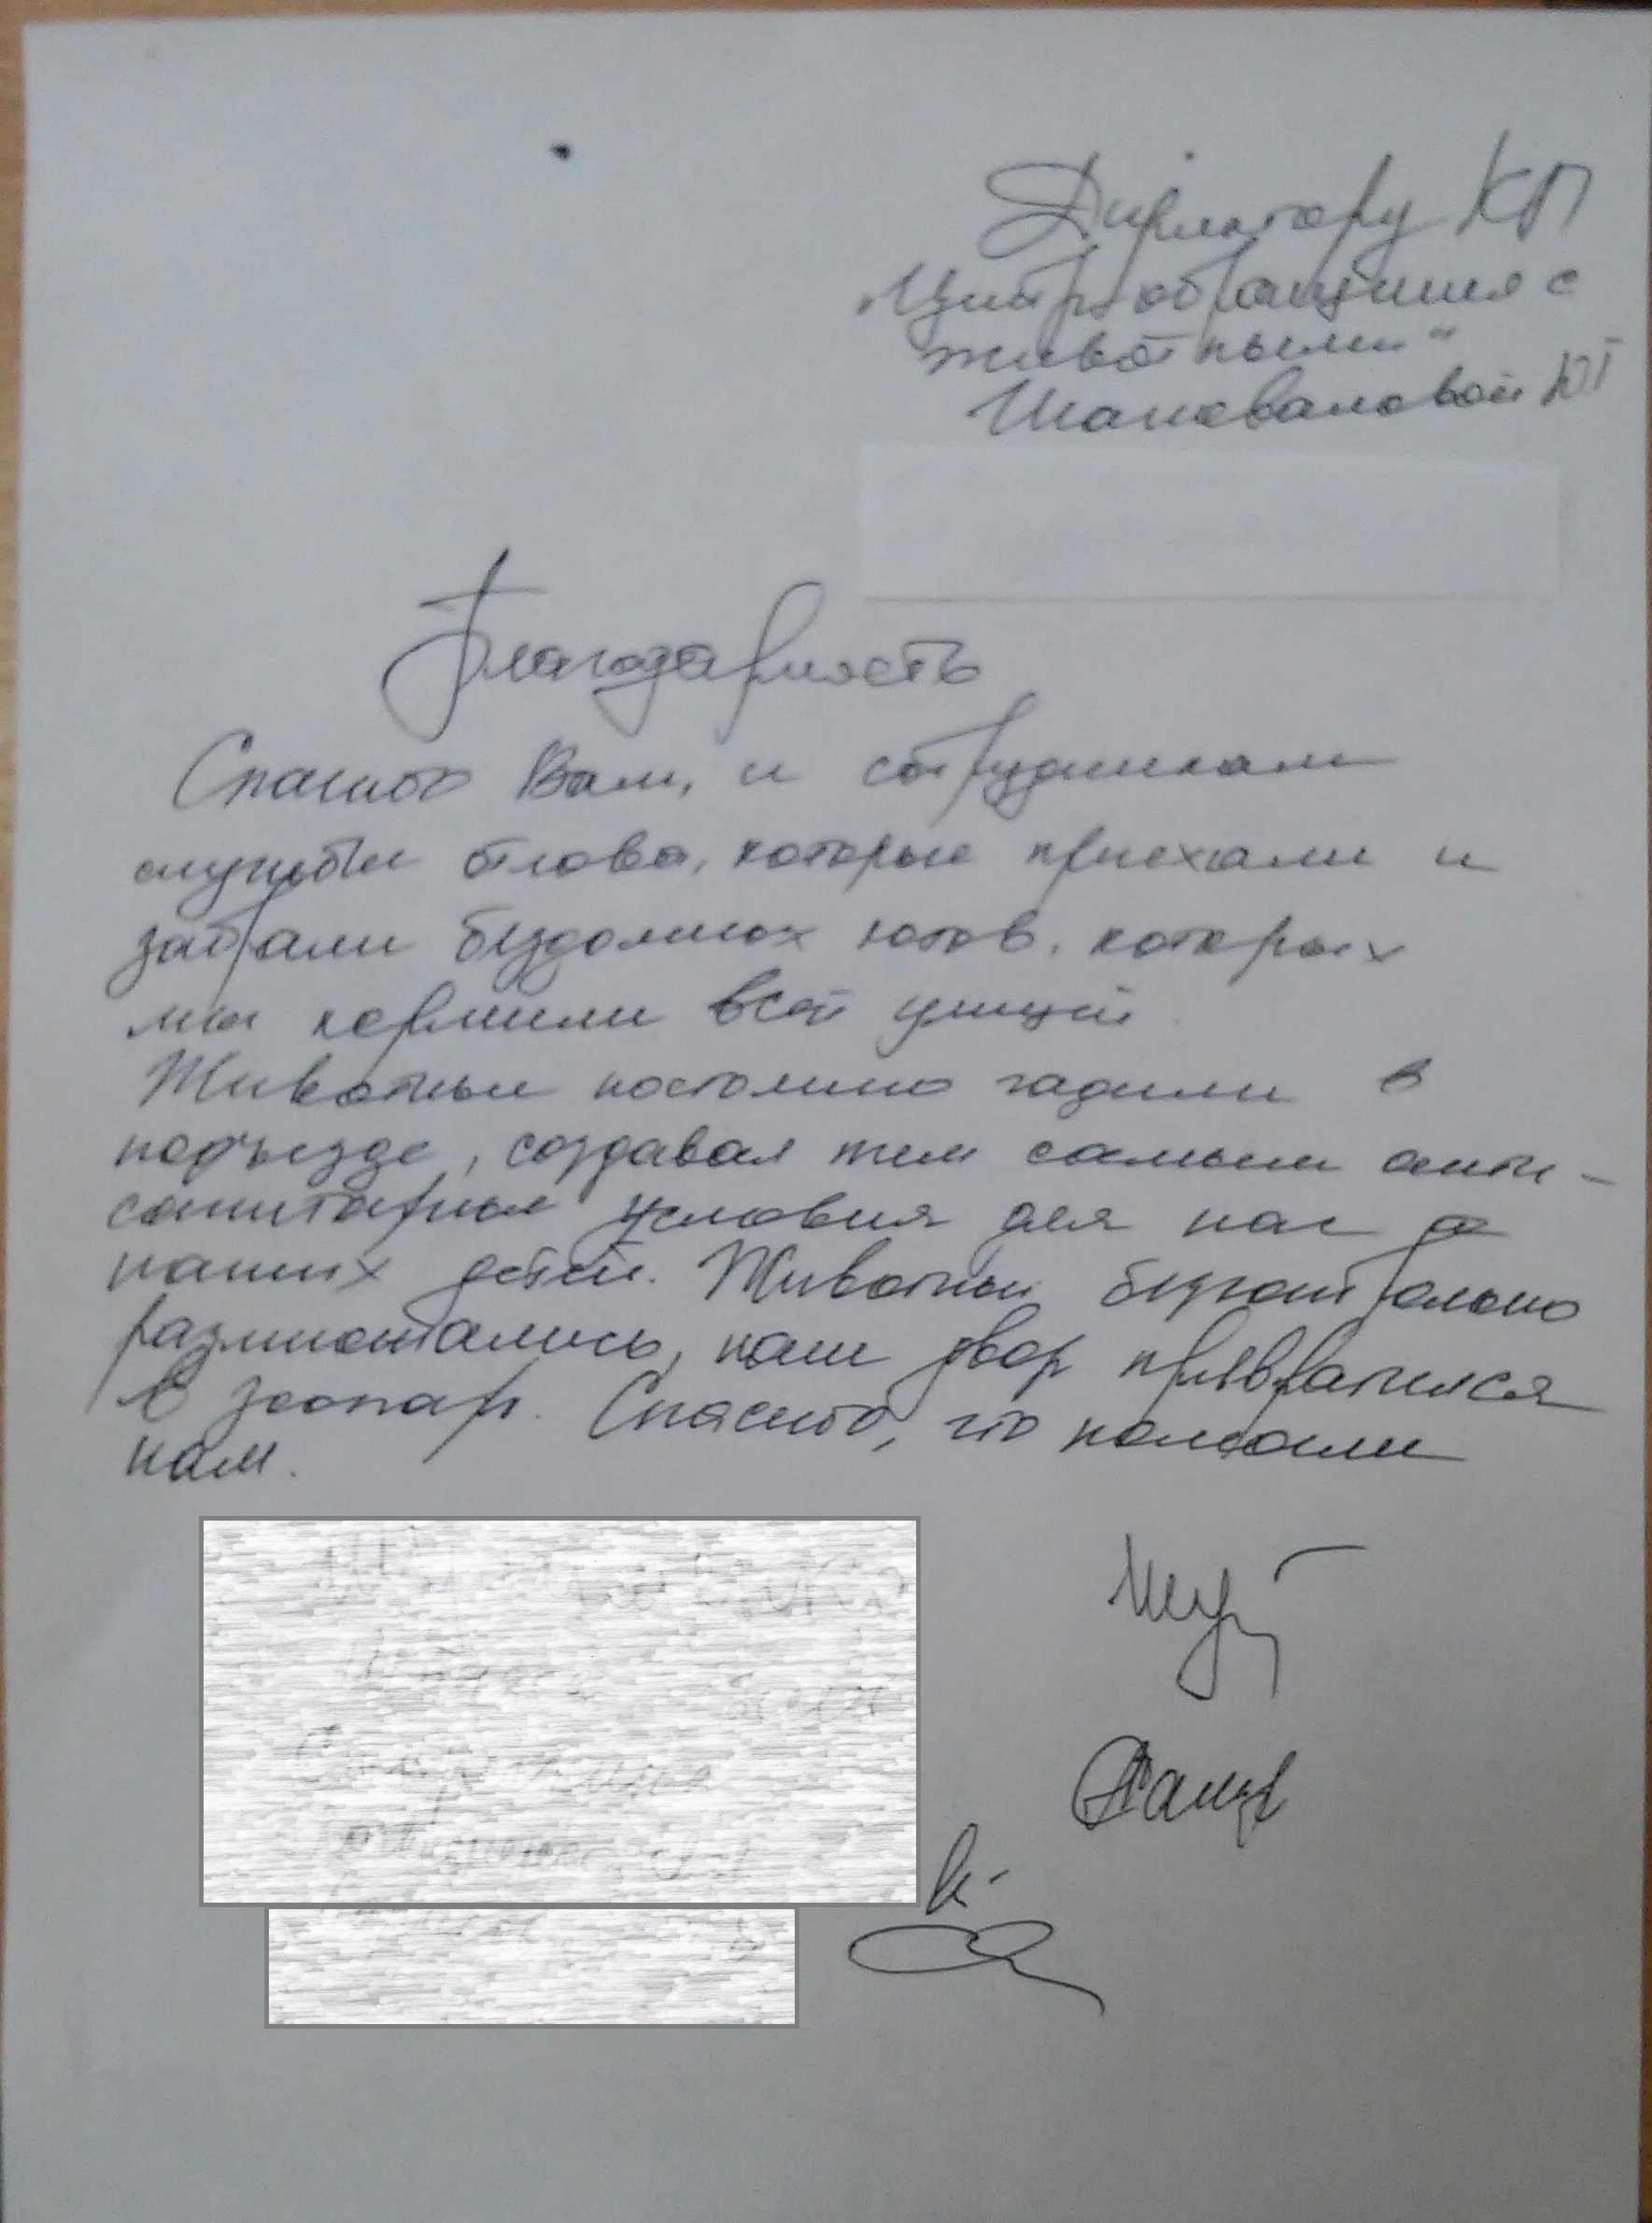 Директору КП
„Центр обращения с
животными"
Шаповаловой Ю Г
Благодарность
Спасибо Вам, и сотрудникам
службы отлова, которые приехали и
забрали бездомных котов, которых
мы кормили всей улицей.
Животные постоянно гадили в
подъезде, создавая тем самым анти-
санитарные условия для нас и
наших детей. Животные безконтрольно
размножались, наш двор превратился
в зоопарк. Спасибо, что помогли
нам.